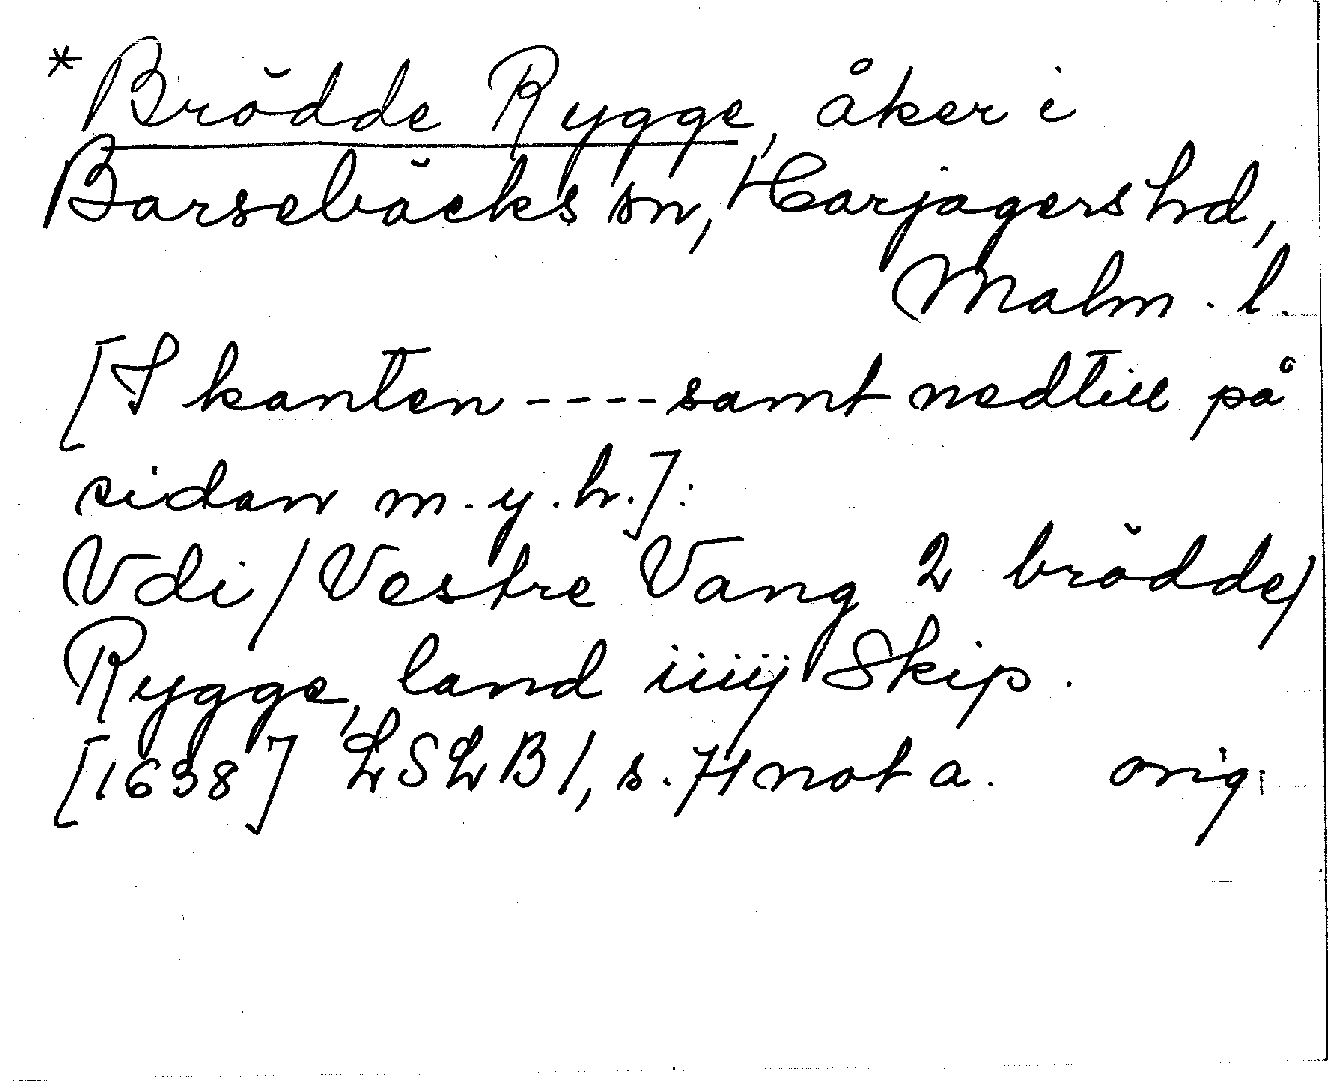 *Brödde Rygge, åker i
Barsebäcks sn, Harjagers hd,
Malm. l.
[I kanten ---- samt nedtill på
sidan m.y.h.]:
Vdi / Vestre Vang 2 brödde/
Rygge, land iiiij Skip.
[1638] LSLB 1, s. 71 not a. orig.